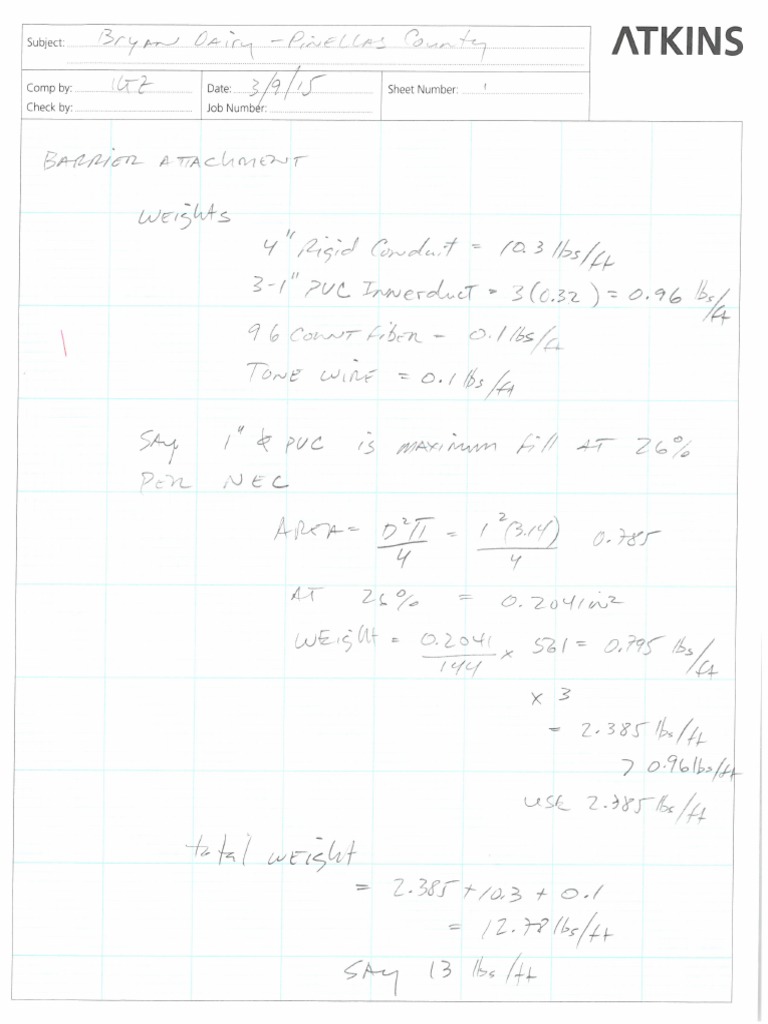 Subject: Bryan Dairy - Pinellas County
ATKINS
Comp by: KGZ Date: 3/9/15 Sheet Number: 1
Check by: Job Number:
BARRIER ATTACHMENT
WEIGHTS
4" Rigid Conduit = 10.3 lbs/ft
3-1" PVC INNERDUCT = 3(0.32) = 0.96 lbs/ft
96 COUNT FIBER - 0.1 lbs/ft
TONE WIRE = 0.1 lbs/ft
SAY 1" & PVC is MAXIMUM fill AT 26%
PER NEC
AREA = D²π/4 = 1²(3.14)/4 0.785
AT 26% = 0.2041 in²
WEIGHT = 0.2041/144 x 561 = 0.795 lbs/ft
x 3
= 2.385 lbs/ft
> 0.96 lbs/ft
USE 2.385 lbs/ft
total WEIGHT
= 2.385 + 10.3 + 0.1
= 12.78 lbs/ft
SAY 13 lbs/ft